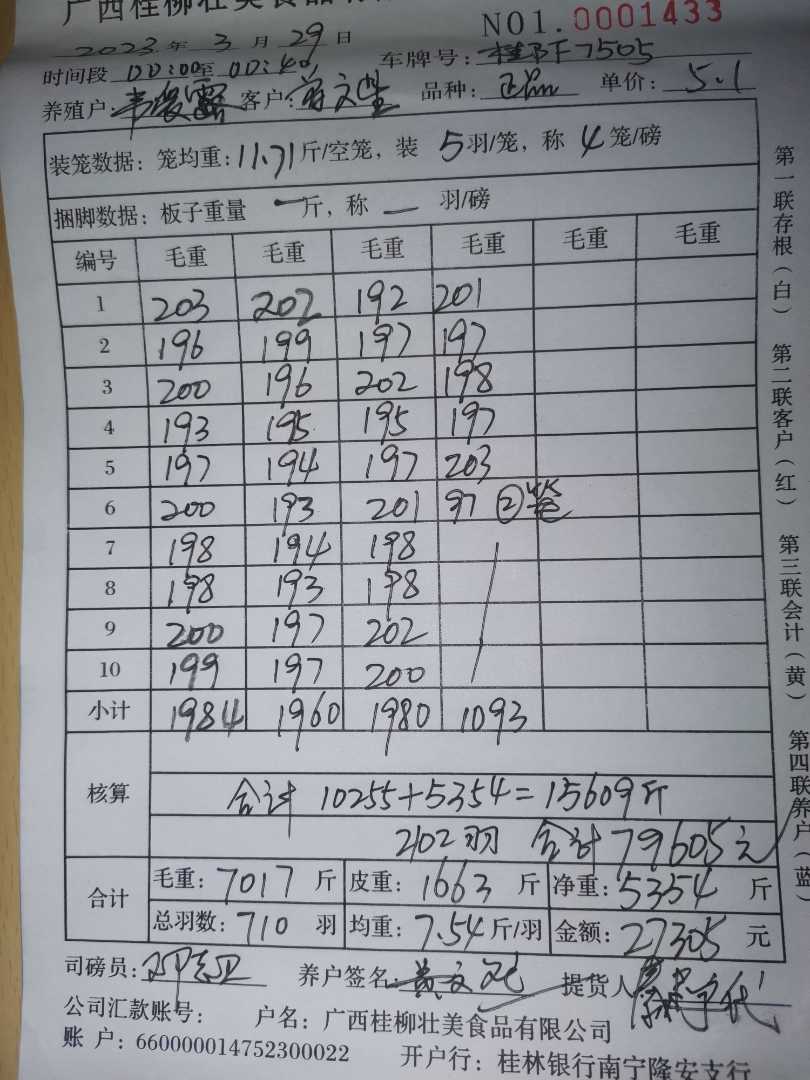 广西桂柳壮美食品有限
NO1. 0001433
2023 年 3 月 29 日
时间段 00:00至 00:40 车牌号: 桂BF7505
养殖户: 客户: 品种: 单价: 5.1
装笼数据: 笼均重: 11.71 斤/空笼, 装 5 羽/笼, 称 4 笼/磅
捆脚数据: 板子重量 一 斤, 称 一 羽/磅
编号 毛重 毛重 毛重 毛重 毛重 毛重
1 203 202 192 201
2 196 199 197 197
3 200 196 202 198
4 193 195 195 197
5 197 194 197 203
6 200 193 201 97 ②笼
7 198 194 198
8 198 193 198
9 200 197 202
10 199 197 200
小计 1984 1960 1980 1093
核算
合计 10255+5354=15609斤
2102羽 合计79605元
合计 毛重: 7017 斤 皮重: 1663 斤 净重: 5354 斤
总羽数: 710 羽 均重: 7.54 斤/羽 金额: 27305 元
司磅员: 养户签名: 提货人
公司汇款账号: 户名: 广西桂柳壮美食品有限公司
账 户: 660000014752300022 开户行: 桂林银行南宁隆安支行
第一联存根(白) 第二联客户(红) 第三联会计(黄) 第四联养户(蓝)